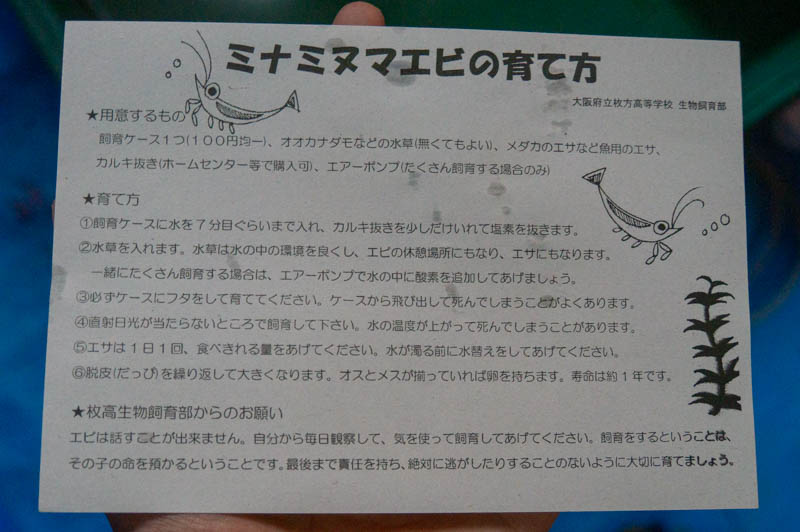 ミナミヌマエビの育て方
大阪府立枚方高等学校 生物飼育部
★用意するもの
飼育ケース1つ(100円均一)、オオカナダモなどの水草(無くてもよい)、メダカのエサなど魚用のエサ、
カルキ抜き(ホームセンター等で購入可)、エアーポンプ(たくさん飼育する場合のみ)
★育て方
①飼育ケースに水を7分目ぐらいまで入れ、カルキ抜きを少しだけいれて塩素を抜きます。
②水草を入れます。水草は水の中の環境を良くし、エビの休憩場所にもなり、エサにもなります。
一緒にたくさん飼育する場合は、エアーポンプで水の中に酸素を追加してあげましょう。
③必ずケースにフタをして育ててください。ケースから飛び出して死んでしまうことがよくあります。
④直射日光が当たらないところで飼育して下さい。水の温度が上がって死んでしまうことがあります。
⑤エサは1日1回、食べきれる量をあげてください。水が濁る前に水替えをしてあげてください。
⑥脱皮(だっぴ)を繰り返して大きくなります。オスとメスが揃っていれば卵を持ちます。寿命は約1年です。
★枚高生物飼育部からのお願い
エビは話すことが出来ません。自分から毎日観察して、気を使って飼育してあげてください。飼育をするということは、
その子の命を預かるということです。最後まで責任を持ち、絶対に逃がしたりすることのないように大切に育てましょう。